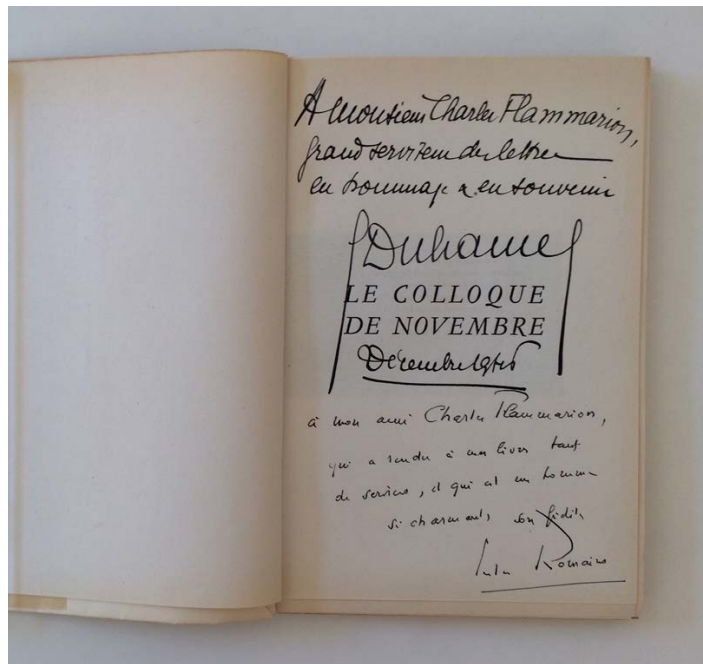 A Monsieur Charles Flammarion,
grand serviteur des lettres
en hommage & en souvenir
GDuhamel
LE COLLOQUE
DE NOVEMBRE
Décembre
à mon ami Charles Flammarion,
qui a rendu à mes livres tant
de services, et qui est un homme
si charmant, son fidèle
Jules Romains